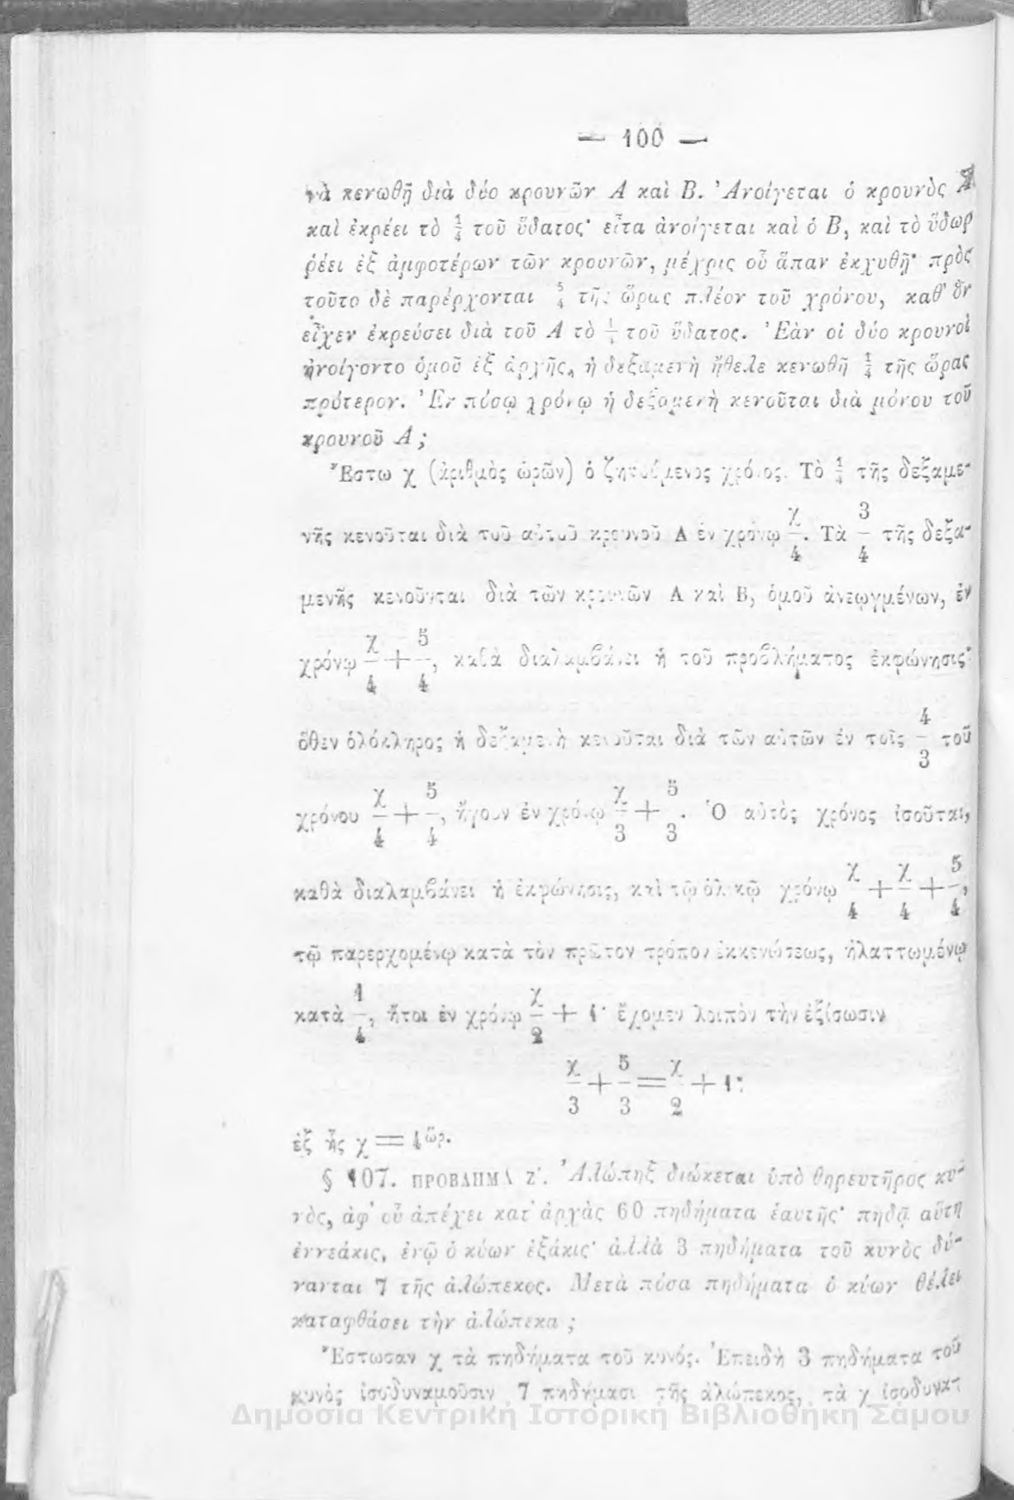 — 100 —
νὰ κενωθῇ διὰ δύο κρουνῶν Α καὶ Β. Ἀνοίγεται ὁ κρουνὸς Α
καὶ ἐκρέει τὸ 1/4 τοῦ ὕδατος· εἶτα ἀνοίγεται καὶ ὁ Β, καὶ τὸ ὕδωρ
ῥέει ἐξ ἀμφοτέρων τῶν κρουνῶν, μέχρις οὗ ἅπαν ἐκχυθῇ· πρὸς
τοῦτο δὲ παρέρχονται 5/4 τῆς ὥρας πλέον τοῦ χρόνου, καθ' ὃν
εἶχεν ἐκρεύσει διὰ τοῦ Α τὸ 1/4 τοῦ ὕδατος. Ἐὰν οἱ δύο κρουνοὶ
ἠνοίγοντο ὁμοῦ ἐξ ἀρχῆς, ἡ δεξαμενὴ ἤθελε κενωθῆ 1/4 τῆς ὥρας
πρότερον. Ἐν πόσῳ χρόνῳ ἡ δεξαμενὴ κενοῦται διὰ μόνου τοῦ
κρουνοῦ Α;
Ἔστω χ (ἀριθμὸς ὡρῶν) ὁ ζητούμενος χρόνος. Τὸ 1/4 τῆς δεξαμε-
νῆς κενοῦται διὰ τοῦ αὐτοῦ κρουνοῦ Α ἐν χρόνῳ χ/4. Τὰ 3/4 τῆς δεξα-
μενῆς κενοῦνται διὰ τῶν κρουνῶν Α καὶ Β, ὁμοῦ ἀνεῳγμένων, ἐν
χρόνῳ χ/4 + 5/4, καθὰ διαλαμβάνει ἡ τοῦ προβλήματος ἐκφώνησις·
ὅθεν ὁλόκληρος ἡ δεξαμενὴ κενοῦται διὰ τῶν αὐτῶν ἐν τοῖς 4/3 τοῦ
χρόνου χ/4 + 5/4, ἤγουν ἐν χρόνῳ χ/3 + 5/3. Ὁ αὐτὸς χρόνος ἰσοῦται,
καθὰ διαλαμβάνει ἡ ἐκφώνησις, καὶ τῷ ὁλικῷ χρόνῳ χ/4 + χ/4 + 5/4,
τῷ παρερχομένῳ κατὰ τὸν πρῶτον τρόπον ἐκκενώσεως, ἠλαττωμένῳ
κατὰ 1/4, ἤτοι ἐν χρόνῳ χ/2 + 1· ἔχομεν λοιπὸν τὴν ἐξίσωσιν
χ/3 + 5/3 = χ/2 + 1·
ἐξ ἧς χ = 4 ὥρ.
§ 107. ΠΡΟΒΛΗΜΑ Ζ'. Ἀλώπηξ διώκεται ὑπὸ θηρευτῆρος κυ-
νὸς, ἀφ' οὗ ἀπέχει κατ' ἀρχὰς 60 πηδήματα ἑαυτῆς· πηδᾷ αὕτη
ἐννεάκις, ἐνῷ ὁ κύων ἑξάκις· ἀλλὰ 3 πηδήματα τοῦ κυνὸς δύ-
νανται 7 τῆς ἀλώπεκος. Μετὰ πόσα πηδήματα ὁ κύων θέλει
καταφθάσει τὴν ἀλώπεκα;
Ἔστωσαν χ τὰ πηδήματα τοῦ κυνός. Ἐπειδὴ 3 πηδήματα τοῦ
κυνὸς ἰσοδυναμοῦσιν 7 πηδήμασι τῆς ἀλώπεκος, τὰ χ ἰσοδυνα-
Δημόσια Κεντρική Ιστορική Βιβλιοθήκη Σάμου